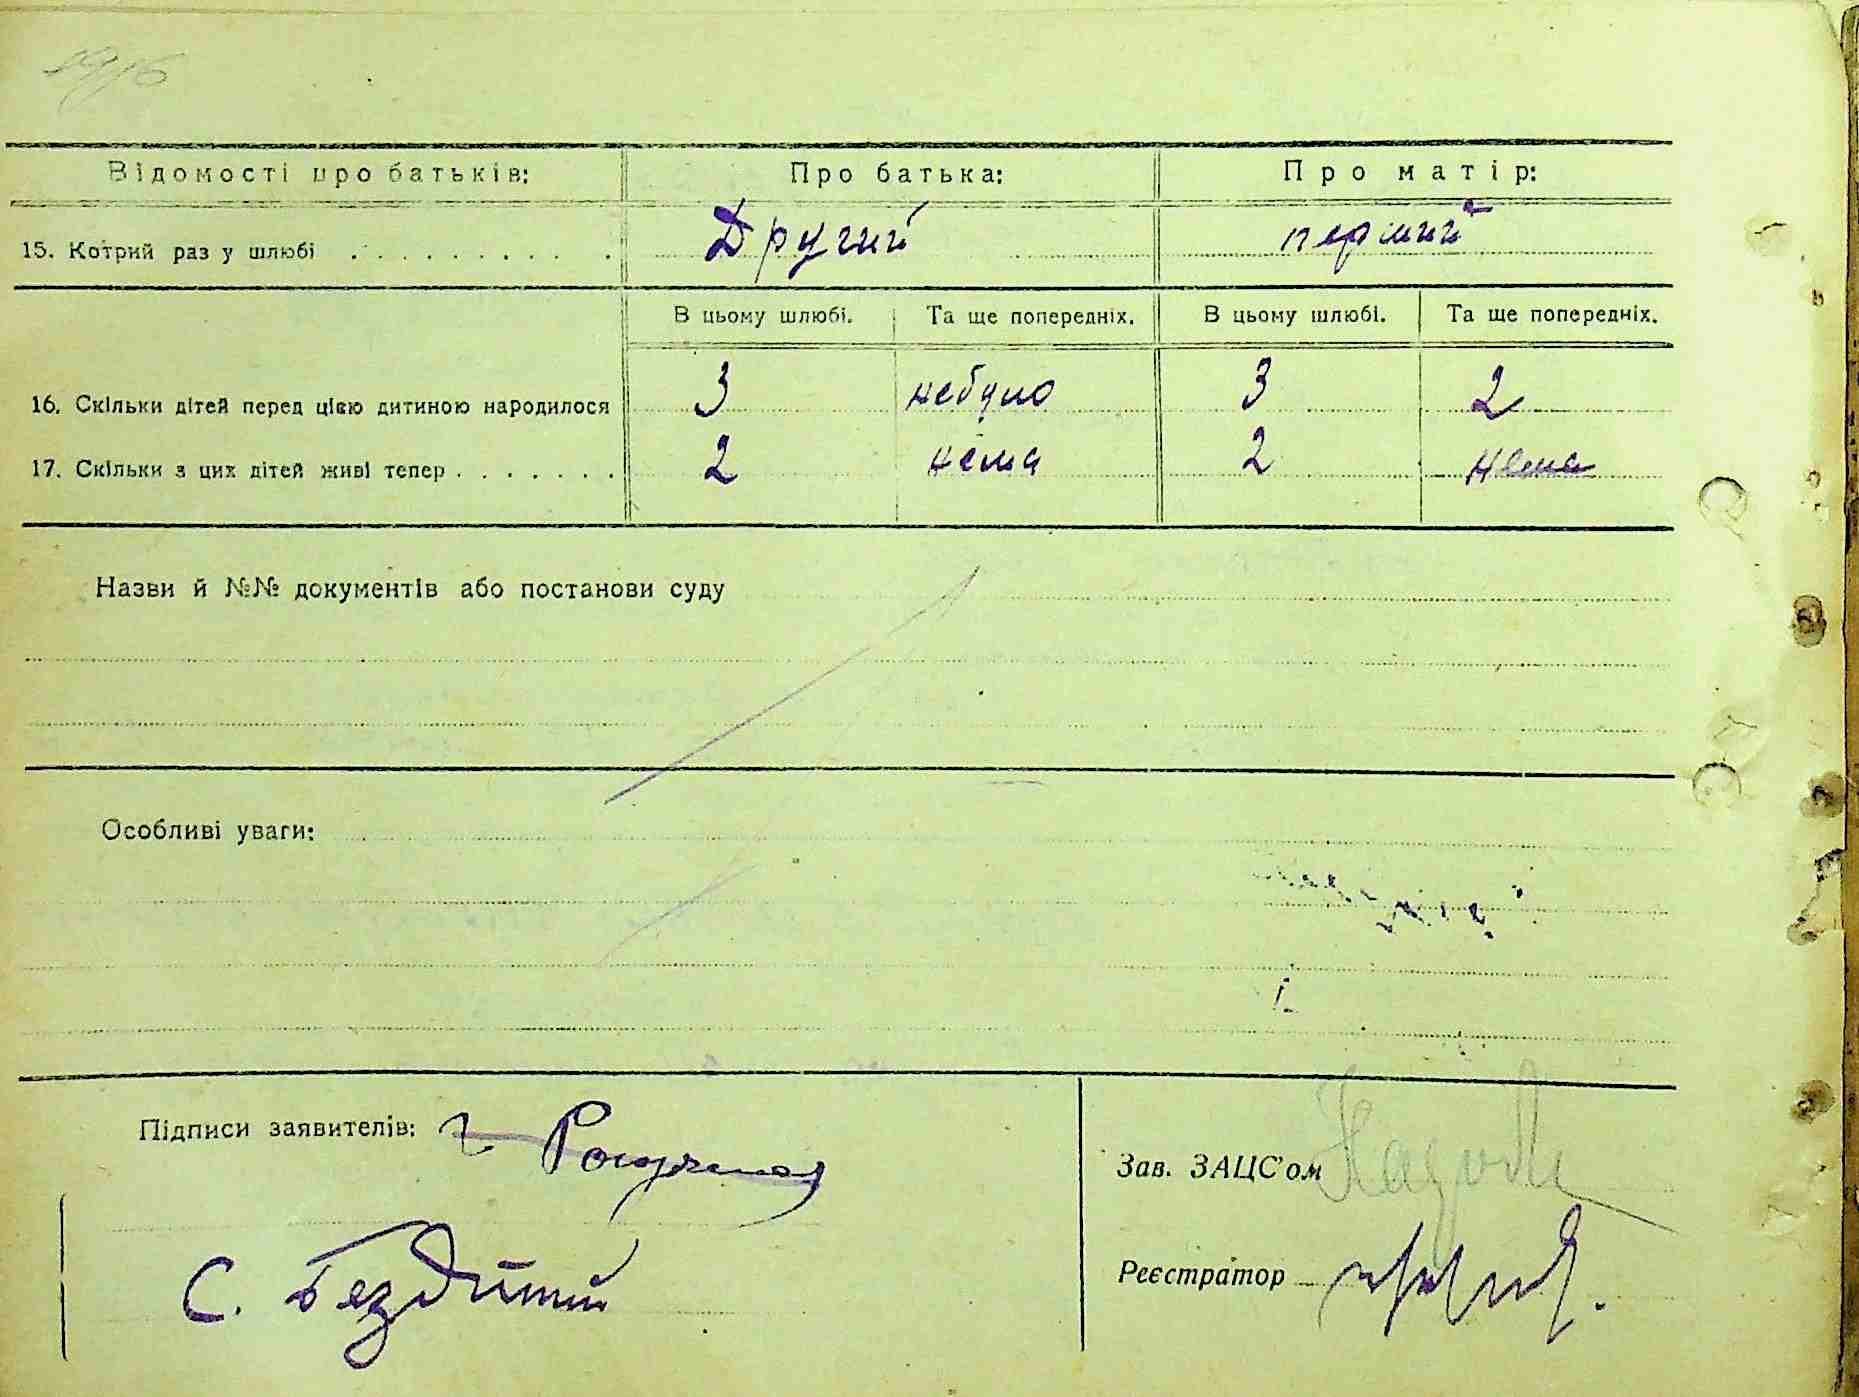 Відомості про батьків: Про батька: Про матір:
15. Котрий раз у шлюбі . . . . . . . . . . Другий перший
В цьому шлюбі. Та ще попередніх. В цьому шлюбі. Та ще попередніх.
16. Скільки дітей перед цією дитиною народилося 3 небуло 3 2
17. Скільки з цих дітей живі тепер . . . . . . . 2 нема 2 нема
Назви й №№ документів або постанови суду
Особливі уваги:
Підписи заявителів:
Зав. ЗАЦС'ом
С. Бездітний
Реєстратор